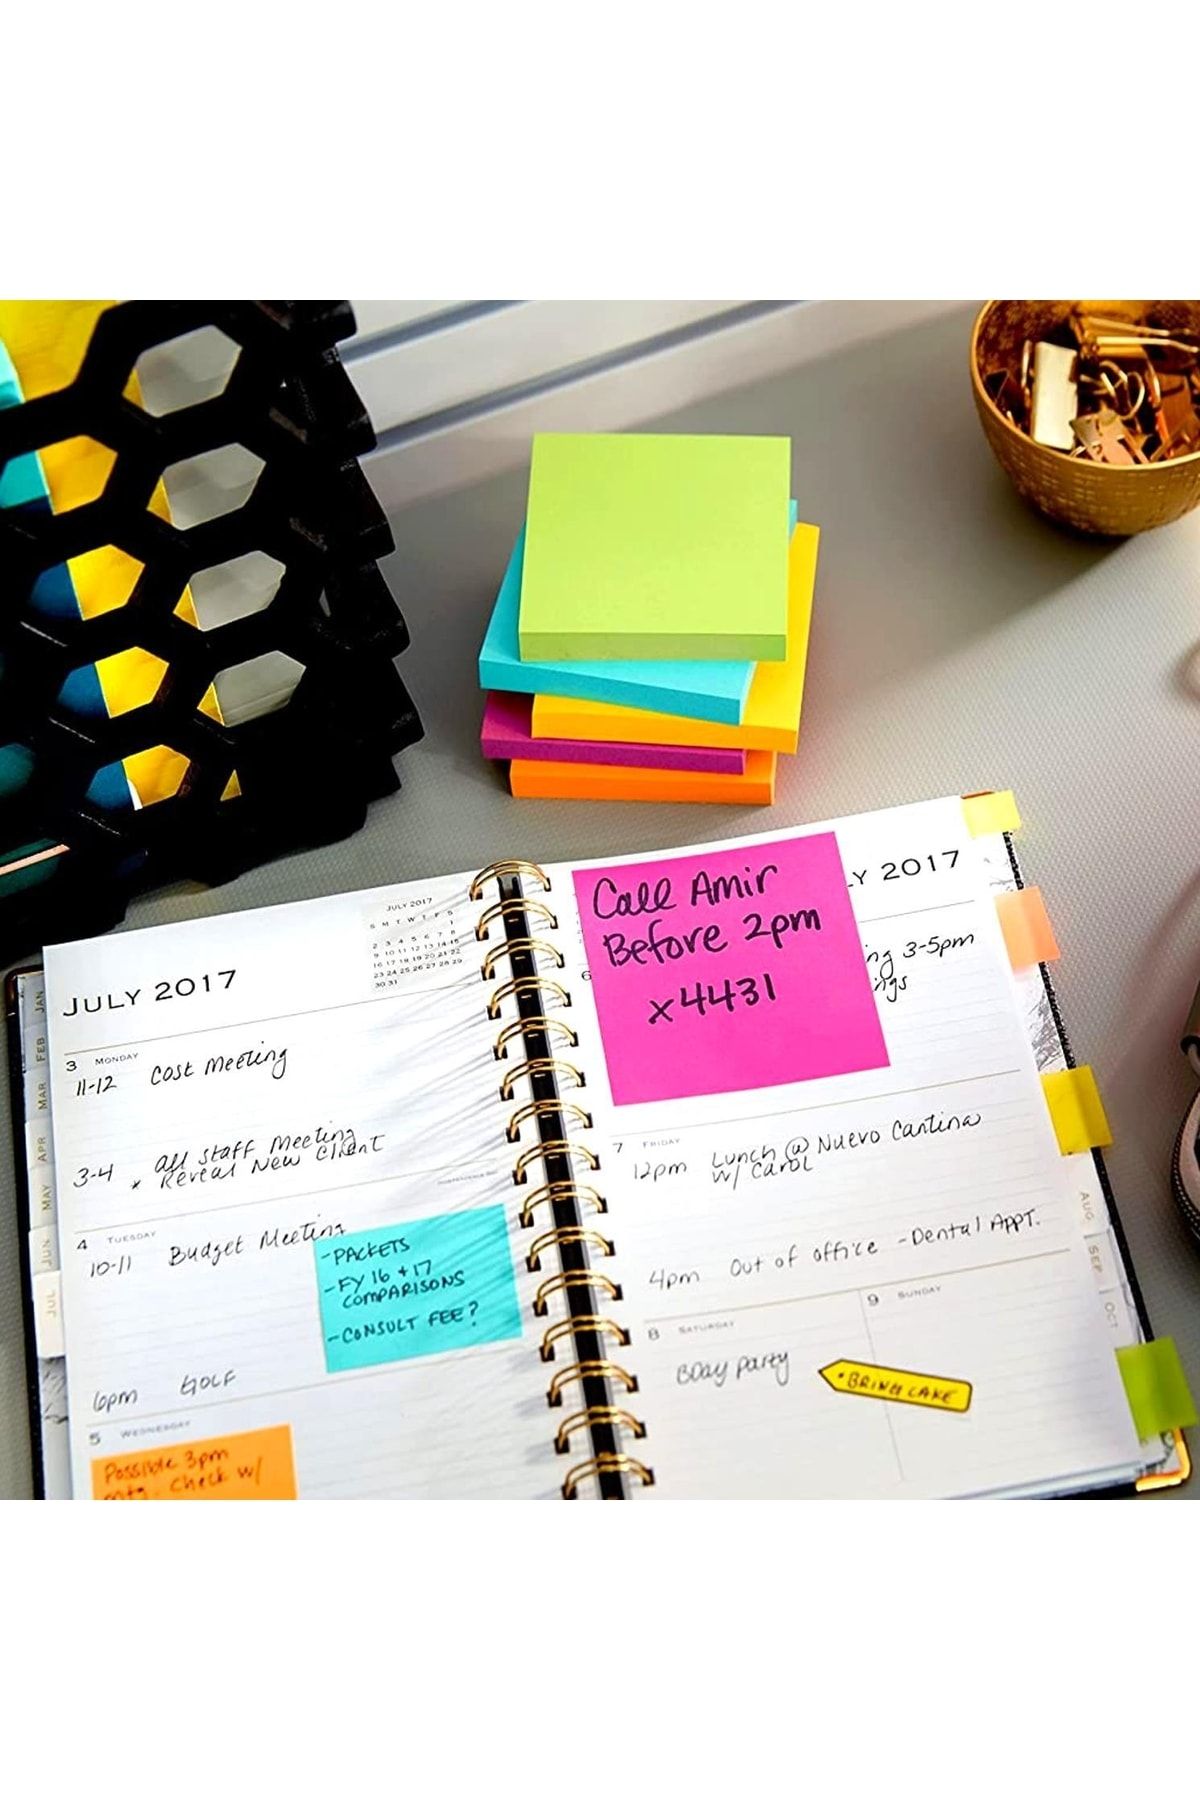 JULY 2017
JULY 2017
S M T W T F S
1
2 3 4 5 6 7 8
9 10 11 12 13 14 15
16 17 18 19 20 21 22
23 24 25 26 27 28 29
30 31
3 MONDAY
11-12 Cost Meeting
3-4 All Staff Meeting
* Reveal New Client
4 TUESDAY
10-11 Budget Meeting
-PACKETS
-FY 16 + 17
COMPARISONS
-CONSULT FEE?
6pm GOLF
5 WEDNESDAY
Possible 3pm
mtg. Check w/
JAN
FEB
MAR
APR
MAY
JUN
JUL
Call Amir
Before 2pm
x4431
LY 2017
6
ng 3-5pm
ngs
7 FRIDAY
12pm Lunch @ Nuevo Cantina
w/ Carol
4pm Out of office - Dental Appt.
8 SATURDAY
Bday party
• BRING CAKE
9 SUNDAY
AUG
SEP
OCT